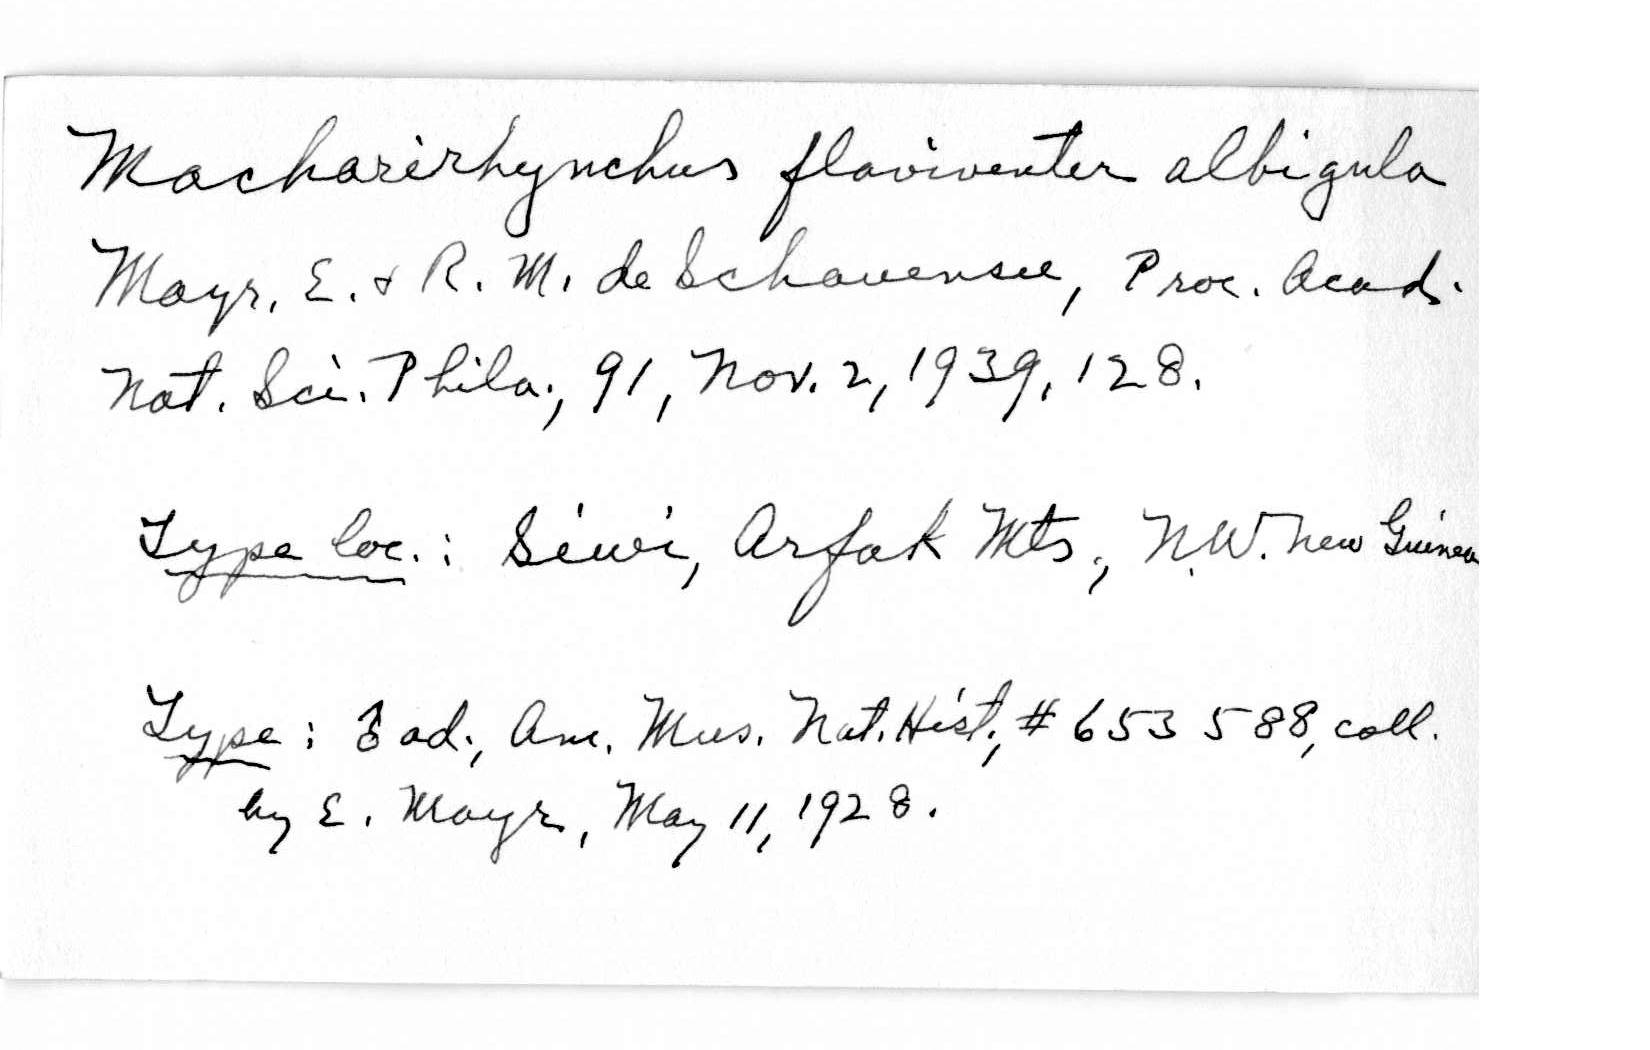 Machaerirhynchus flaviventer albigula
Mayr, E. & R. M. de Schauensee, Proc. Acad.
Nat. Sci. Phila., 91, Nov. 2, 1939, 128.
Type loc.: Siwi, Arfak Mts., N.W. New Guinea
Type: ♂ ad., Am. Mus. Nat. Hist., # 653588, coll.
by E. Mayr, May 11, 1928.